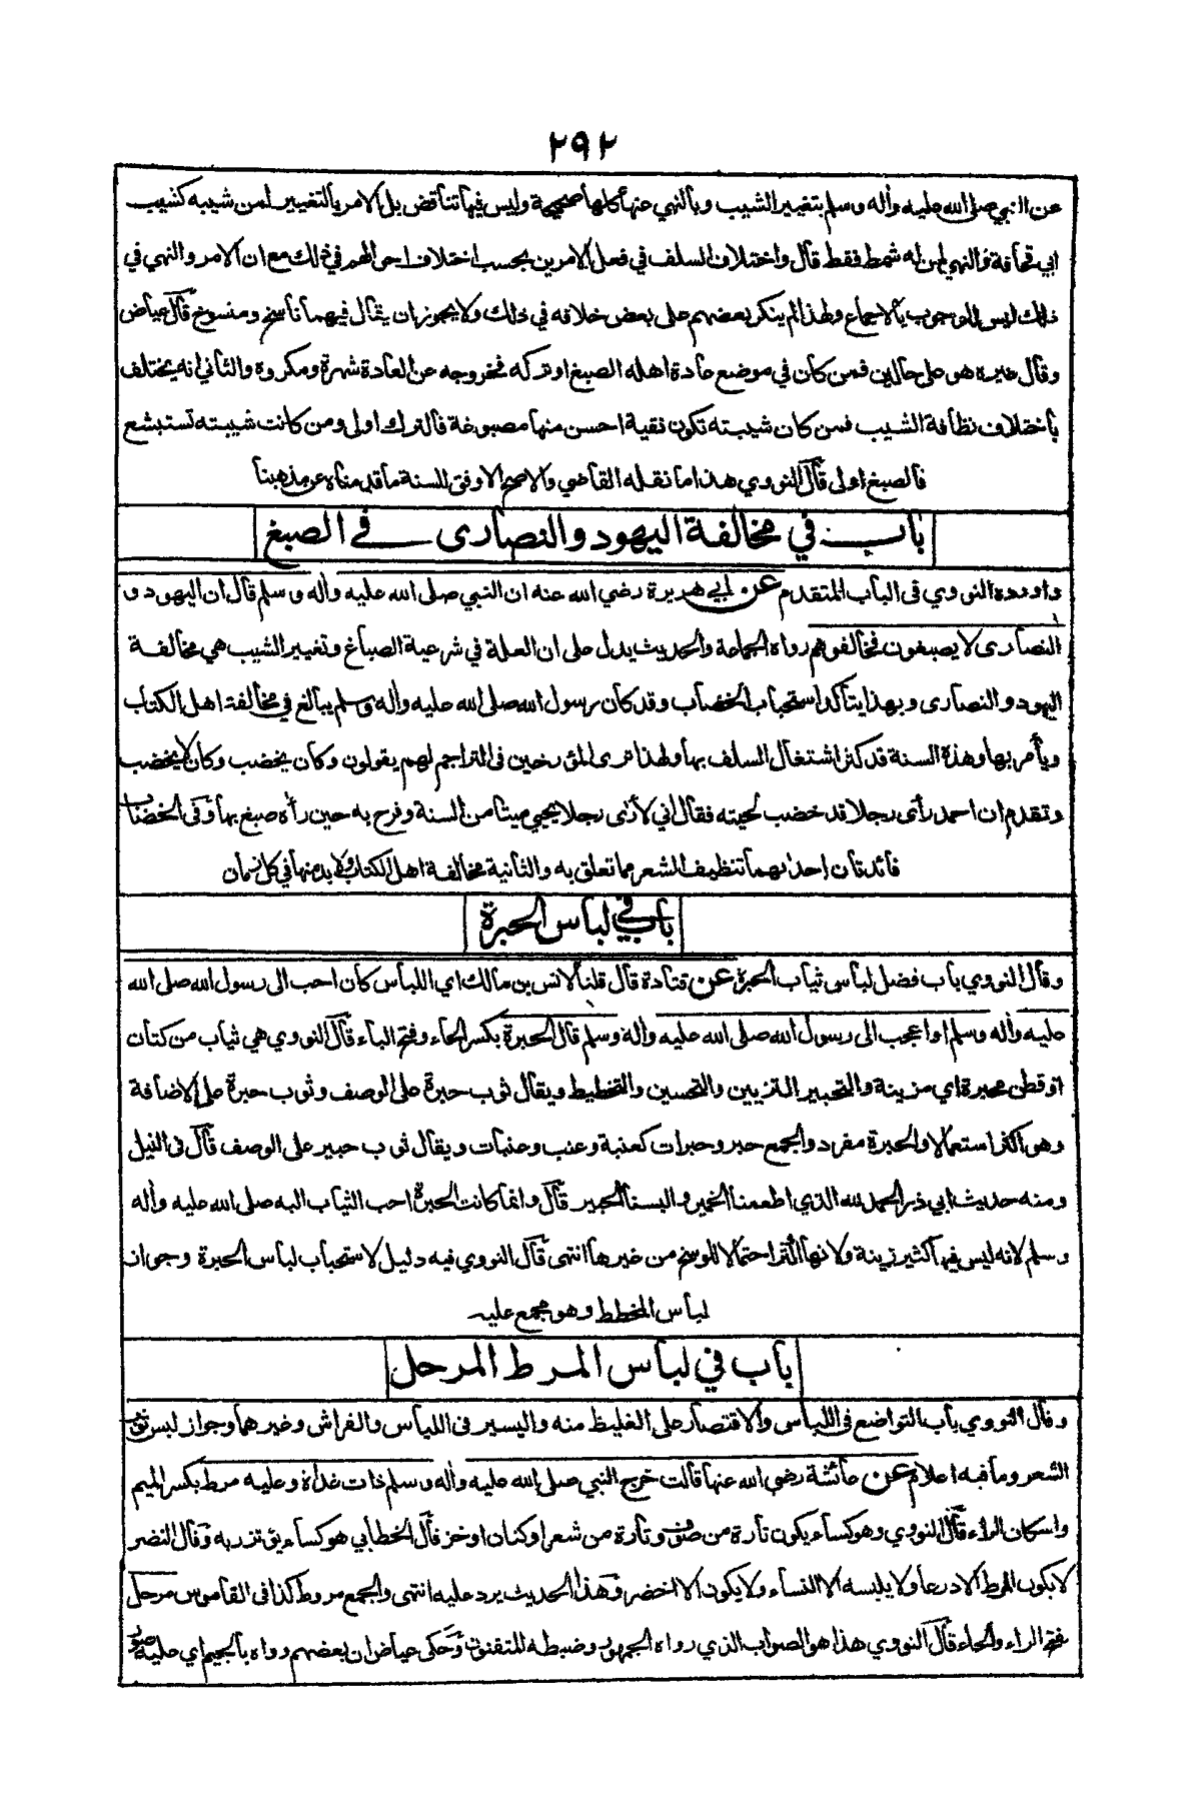 ٢٩٢
عن النبي صلى الله عليه وأله وسلم بتغيير الشيب وبالنهي عنها كلها صحيحة وليس فيها تناقض بل الامر بالتغيير لمن شيبه كشيب
ابي قحافة والنهي لمن له شمط فقط قال واختلاف السلف في فعل الامرين بحسب اختلاف احوالهم في ذلك مع ان الامر والنهي في
ذلك ليس للوجوب بالاجماع ولهذا لم ينكر بعضهم على بعض خلافه في ذلك ولا يجوز ان يقال فيهما ناسخ ومنسوخ قال عياض
وقال غيره هو على حالين فمن كان في موضع عادة اهله الصبغ او تركه فخروجه عن العادة شهرة ومكروه والثاني انه يختلف
باختلاف نظافة الشيب فمن كان شيبته تكون نقية احسن منها مصبوغة فالترك اولى ومن كانت شيبته تستبشع
فالصبغ اولى قال النووي هذا ما نقله القاضي والاصح الاوفق للسنة ما قدمناه عن مذهبنا
باب في مخالفة اليهود والنصارى في الصبغ
واورده النووي في الباب المتقدم عن ابي هريرة رضي الله عنه ان النبي صلى الله عليه وأله وسلم قال ان اليهود و
النصارى لا يصبغون فخالفوهم رواه الجماعة والحديث يدل على ان العلة في شرعية الصباغ وتغيير الشيب هي مخالفة
اليهود والنصارى وبهذا يتأكد استحباب الخضاب وقد كان رسول الله صلى الله عليه وأله وسلم يبالغ في مخالفة اهل الكتاب
ويأمر بها وهذه السنة قد كثر اشتغال السلف بها ولهذا ترى المؤرخين في التراجم لهم يقولون وكان يخضب وكان لا يخضب
وتقدم ان احمد رأى رجلا قد خضب لحيته فقال اني لأرى رجلا يحيي ميتا من السنة وفرح به حين رأه صبغ بها وفي الخضاب
فائدتان احداهما تنظيف الشعر مما تعلق به والثانية مخالفة اهل الكتاب ولا بد منها في كل زمان
باب في لباس الحبرة
وقال النووي باب فضل لباس ثياب الحبرة عن قتادة قال قلنا لانس بن مالك اي اللباس كان احب الى رسول الله صلى الله
عليه وأله وسلم او اعجب الى رسول الله صلى الله عليه وأله وسلم قال الحبرة بكسر الحاء وفتح الباء قال النووي هي ثياب من كتان
او قطن محبرة اي مزينة والتحبير التزيين والتحسين والتخطيط ويقال ثوب حبرة على الوصف وثوب حبرة على الاضافة
وهو اكثر استعمالا والحبرة مفرد والجمع حبر وحبرات كعنبة وعنب وعنبات ويقال ثوب حبير على الوصف قال في النيل
ومنه حديث ابي ذر الحمد لله الذي اطعمنا الخمير والبسنا الحبير قال وانما كانت الحبرة احب الثياب اليه صلى الله عليه وأله
وسلم لانه ليس فيها كثير زينة ولانها اكثر احتمالا للوسخ من غيرها انتهى قال النووي فيه دليل لاستحباب لباس الحبرة وجواز
لباس المخطط وهو مجمع عليه
باب في لباس المرط المرحل
وقال النووي باب التواضع في اللباس والاقتصار على الغليظ منه واليسير في اللباس والفراش وغيرهما وجواز لبس ثوب
الشعر وما فيه اعلام عن عائشة رضي الله عنها قالت خرج النبي صلى الله عليه وأله وسلم ذات غداة وعليه مرط بكسر الميم
واسكان الراء قال النووي وهو كساء يكون تارة من صوف وتارة من شعر او كتان او خز قال الخطابي هو كساء يؤتزر به وقال النضر
لا يكون المرط الا درعا ولا يلبسه الا النساء ولا يكون الا اخضر وهذا الحديث يرد عليه انتهى والجمع مروط كذا في القاموس مرحل
بفتح الراء والحاء قال النووي هذا هو الصواب الذي رواه الجمهور وضبطه المتقنون وحكى عياض ان بعضهم رواه بالجيم اي عليه صور